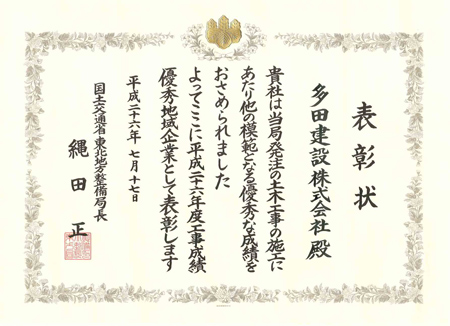 表彰状
多田建設株式会社殿
貴社は当局発注の土木工事の施工に
あたり他の模範となる優秀な成績を
おさめられました
よってここに平成二十六年度工事成績
優秀地域企業として表彰します
平成二十六年七月十七日
国土交通省東北地方整備局長
縄田正